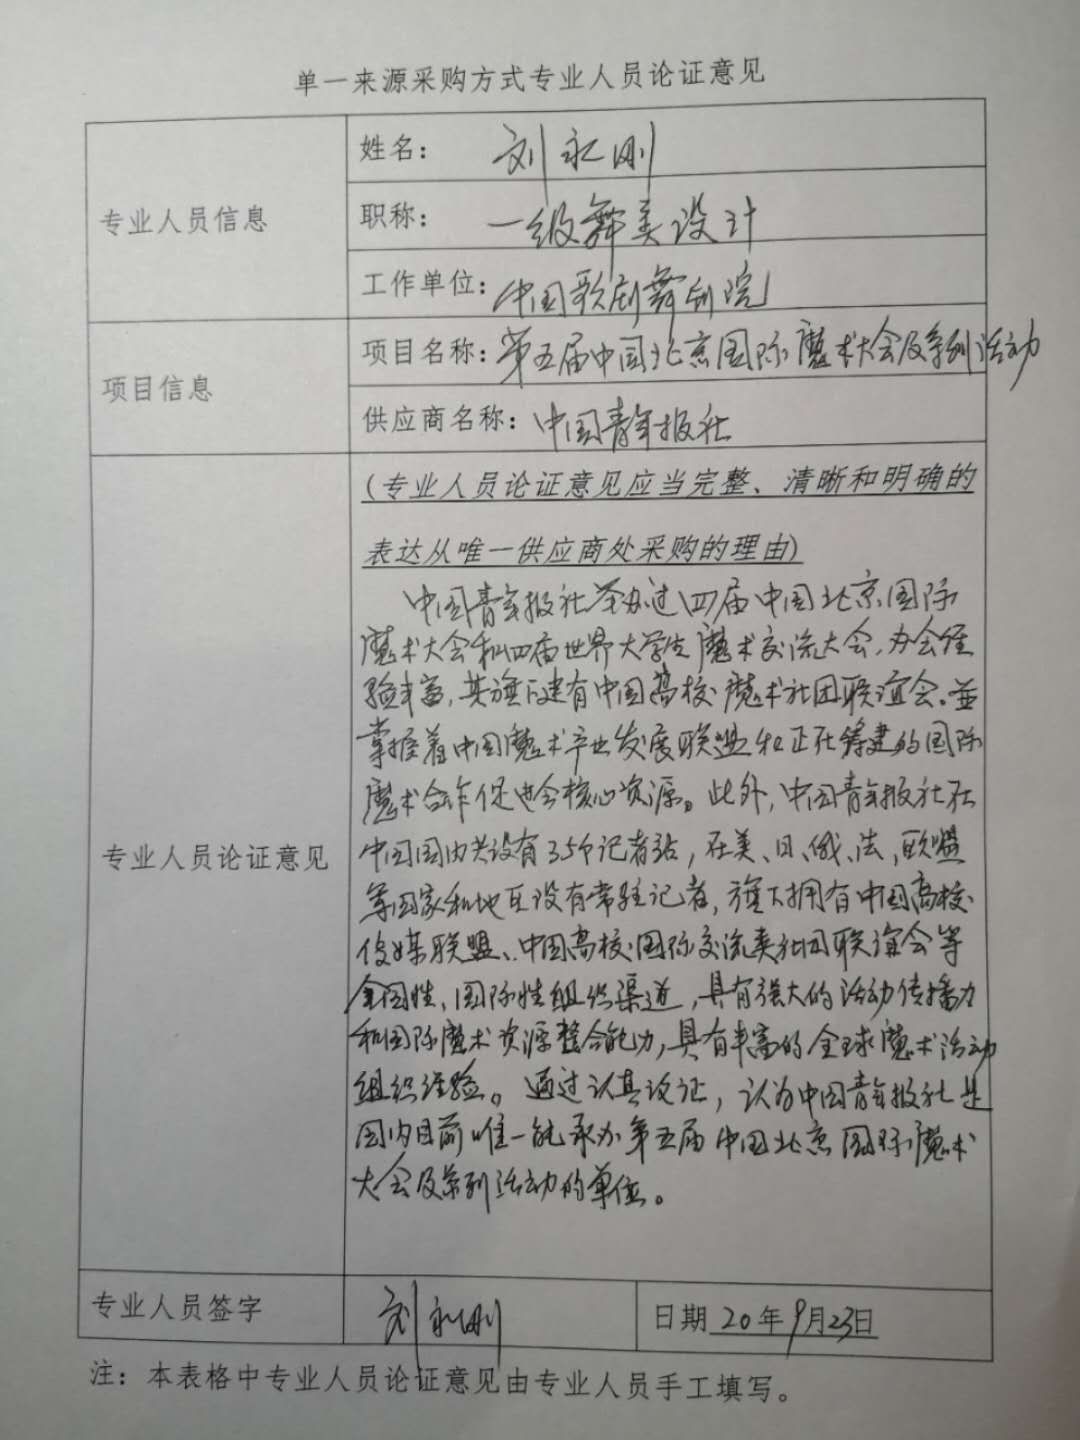 单一来源采购方式专业人员论证意见
专业人员信息
姓名：刘永刚
职称：一级舞美设计
工作单位：中国歌剧舞剧院
项目信息
项目名称：第五届中国北京国际魔术大会及系列活动
供应商名称：中国青年报社
（专业人员论证意见应当完整、清晰和明确的
表达从唯一供应商处采购的理由）
专业人员论证意见
中国青年报社举办过四届中国北京国际
魔术大会和四届世界大学生魔术交流大会，办会经
验丰富，其旗下建有中国高校魔术社团联谊会。并
掌握着中国魔术产业发展联盟和正在筹建的国际
魔术合作促进会核心资源。此外，中国青年报社在
中国国内共设有35个记者站，在美、日、俄、法、联盟
等国家和地区设有常驻记者，旗下拥有中国高校
传媒联盟、中国高校国际交流类社团联谊会等
全国性、国际性组织渠道，具有强大的活动传播力
和国际魔术资源整合能力，具有丰富的全球魔术活动
组织经验。通过认真议证，认为中国青年报社是
国内目前唯一能承办第五届中国北京国际魔术
大会及系列活动的单位。
专业人员签字
刘永刚
日期 20年9月23日
注：本表格中专业人员论证意见由专业人员手工填写。